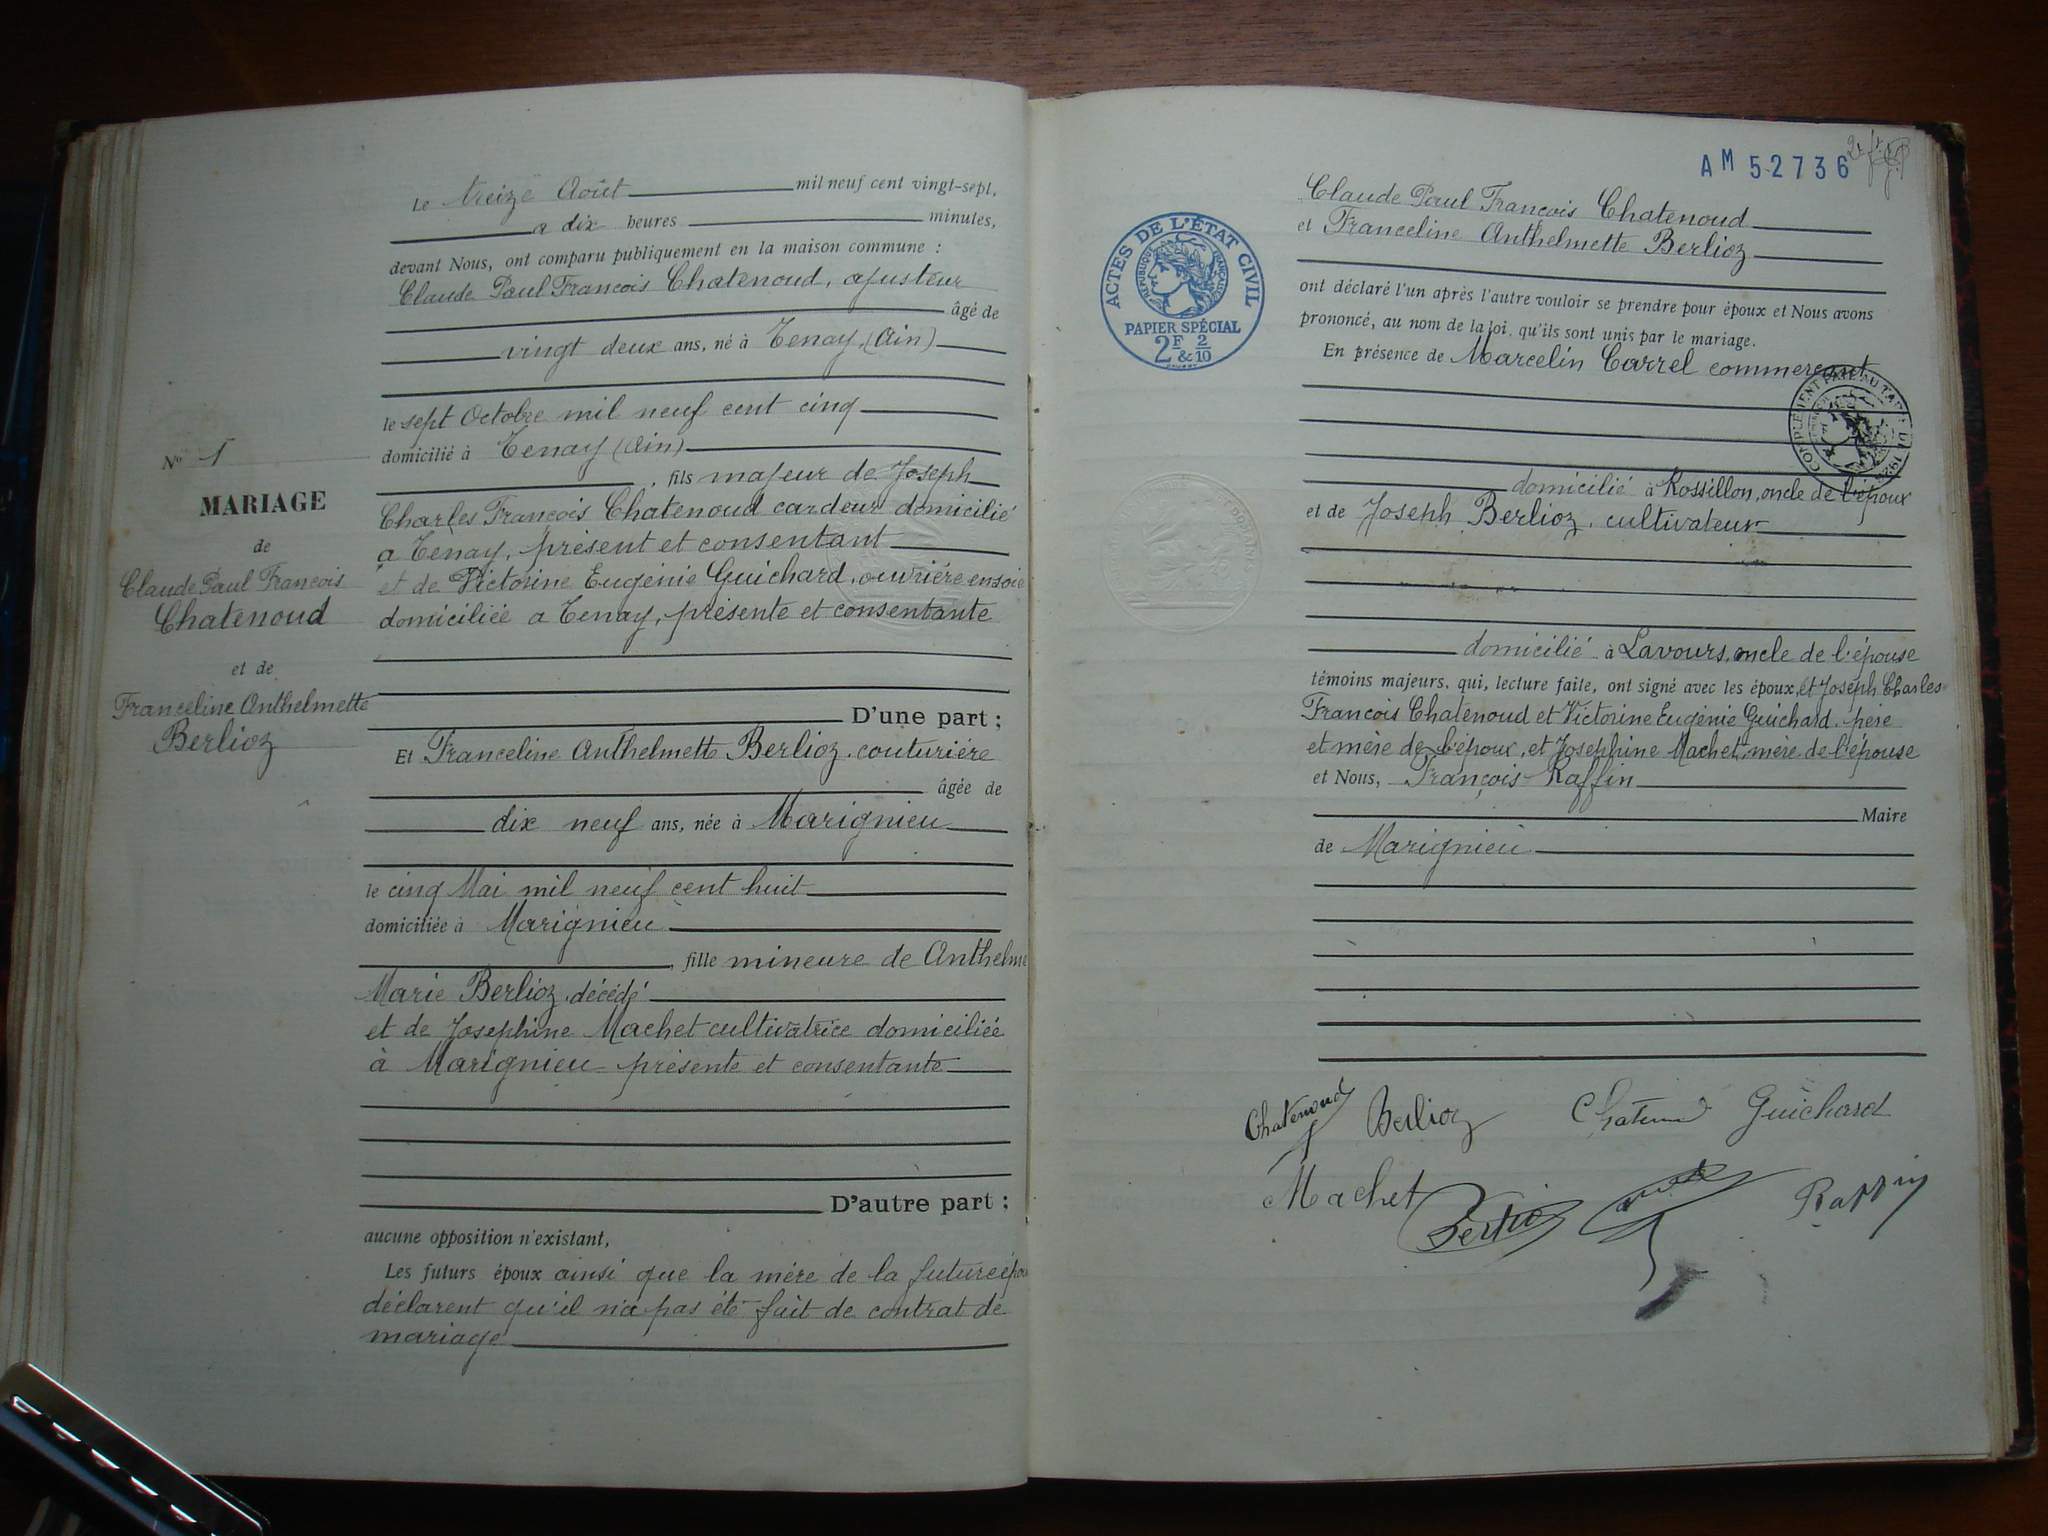 Le treize Août mil neuf cent vingt-sept,
a dix heures minutes,
devant Nous, ont comparu publiquement en la maison commune :
Claude Paul François Chatenoud, ajusteur
âgé de
vingt deux ans, né à Tenay (Ain)
le sept Octobre mil neuf cent cinq
domicilié à Tenay (Ain)
, fils majeur de Joseph
Charles François Chatenoud cardeur domicilié
a Tenay, présent et consentant
et de Victorine Eugénie Guichard, ouvrière en soie
domiciliée a Tenay, présente et consentante
D'une part ;
Et Franceline Anthelmette Berlioz, couturière
âgée de
dix neuf ans, née à Marignieu
le cinq Mai mil neuf cent huit
domiciliée à Marignieu
, fille mineure de Anthelme
Marie Berlioz, décédé
et de Josephine Machet cultivatrice domiciliée
à Marignieu présente et consentante
D'autre part ;
aucune opposition n'existant,
Les futurs époux ainsi que la mère de la future épou
déclarent qu'il n'a pas été fait de contrat de
mariage
No 1
MARIAGE
de
Claude Paul François
Chatenoud
et de
Franceline Anthelmette
Berlioz
AM 52736
Claude Paul François Chatenoud
et Franceline Anthelmette Berlioz
ont déclaré l'un après l'autre vouloir se prendre pour époux et Nous avons
prononcé, au nom de la loi, qu'ils sont unis par le mariage.
En présence de Marcelin Carrel commerçant
domicilié à Rossillon, oncle de l'époux
et de Joseph Berlioz, cultivateur
domicilié à Lavours, oncle de l'épouse
témoins majeurs, qui, lecture faite, ont signé avec les époux, et Joseph Charles
François Chatenoud et Victorine Eugénie Guichard, père
et mère de l'époux, et Josephine Machet, mère de l'épouse
et Nous, François Raffin
Maire
de Marignieu
ACTES DE L'ÉTAT CIVIL
RÉPUBLIQUE FRANÇAISE
PAPIER SPÉCIAL
2F & 2/10
COMPLÉMENT PAYÉ AU TARIF DE
Chatenoud Berlioz Chatenoud Guichard
Machet Berlioz Raffin